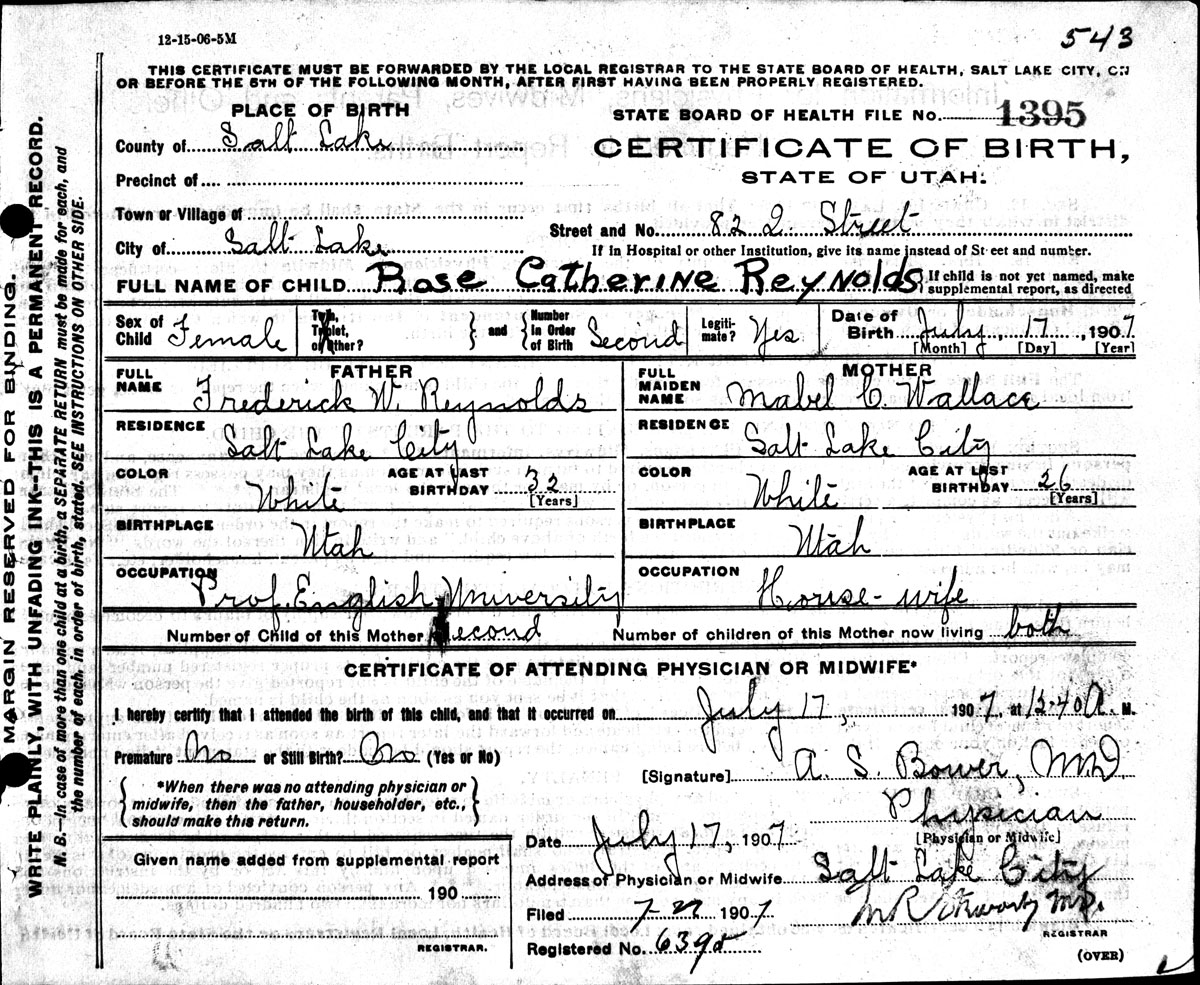 12-15-06-5M
543
THIS CERTIFICATE MUST BE FORWARDED BY THE LOCAL REGISTRAR TO THE STATE BOARD OF HEALTH, SALT LAKE CITY, ON
OR BEFORE THE 5TH OF THE FOLLOWING MONTH, AFTER FIRST HAVING BEEN PROPERLY REGISTERED.
PLACE OF BIRTH
STATE BOARD OF HEALTH FILE No. 1395
County of Salt Lake
CERTIFICATE OF BIRTH,
STATE OF UTAH.
Precinct of
Town or Village of
Street and No. 82 Q. Street
City of Salt Lake
If in Hospital or other Institution, give its name instead of Street and number.
FULL NAME OF CHILD Rose Catherine Reynolds
If child is not yet named, make
supplemental report, as directed
Sex of Child Female
Twin, Triplet, or other? } and { Number in Order of Birth Second
Legitimate? Yes
Date of Birth July 17, 1907
[Month] [Day] [Year]
FATHER
FULL NAME Frederick W. Reynolds
RESIDENCE Salt Lake City
COLOR White
AGE AT LAST BIRTHDAY 32 [Years]
BIRTHPLACE Utah
OCCUPATION Prof. English University
MOTHER
FULL MAIDEN NAME Mabel C. Wallace
RESIDENCE Salt Lake City
COLOR White
AGE AT LAST BIRTHDAY 26 [Years]
BIRTHPLACE Utah
OCCUPATION House-wife
Number of Child of this Mother Second
Number of children of this Mother now living both
CERTIFICATE OF ATTENDING PHYSICIAN OR MIDWIFE*
I hereby certify that I attended the birth of this child, and that it occurred on July 17, 1907, at 12:40 A. M.
Premature No or Still Birth? No (Yes or No)
[Signature] A. S. Bower, MD
*When there was no attending physician or
midwife, then the father, householder, etc.,
should make this return.
Physician
[Physician or Midwife]
Date July 17, 1907
Given name added from supplemental report
190
REGISTRAR.
Address of Physician or Midwife Salt Lake City
Filed 7-27 1907
REGISTRAR
Registered No.
(OVER)
MARGIN RESERVED FOR BINDING.
WRITE PLAINLY, WITH UNFADING INK--THIS IS A PERMANENT RECORD.
N. B.—In case of more than one child at a birth, a SEPARATE RETURN must be made for each, and
the number of each, in order of birth, stated. SEE INSTRUCTIONS ON OTHER SIDE.